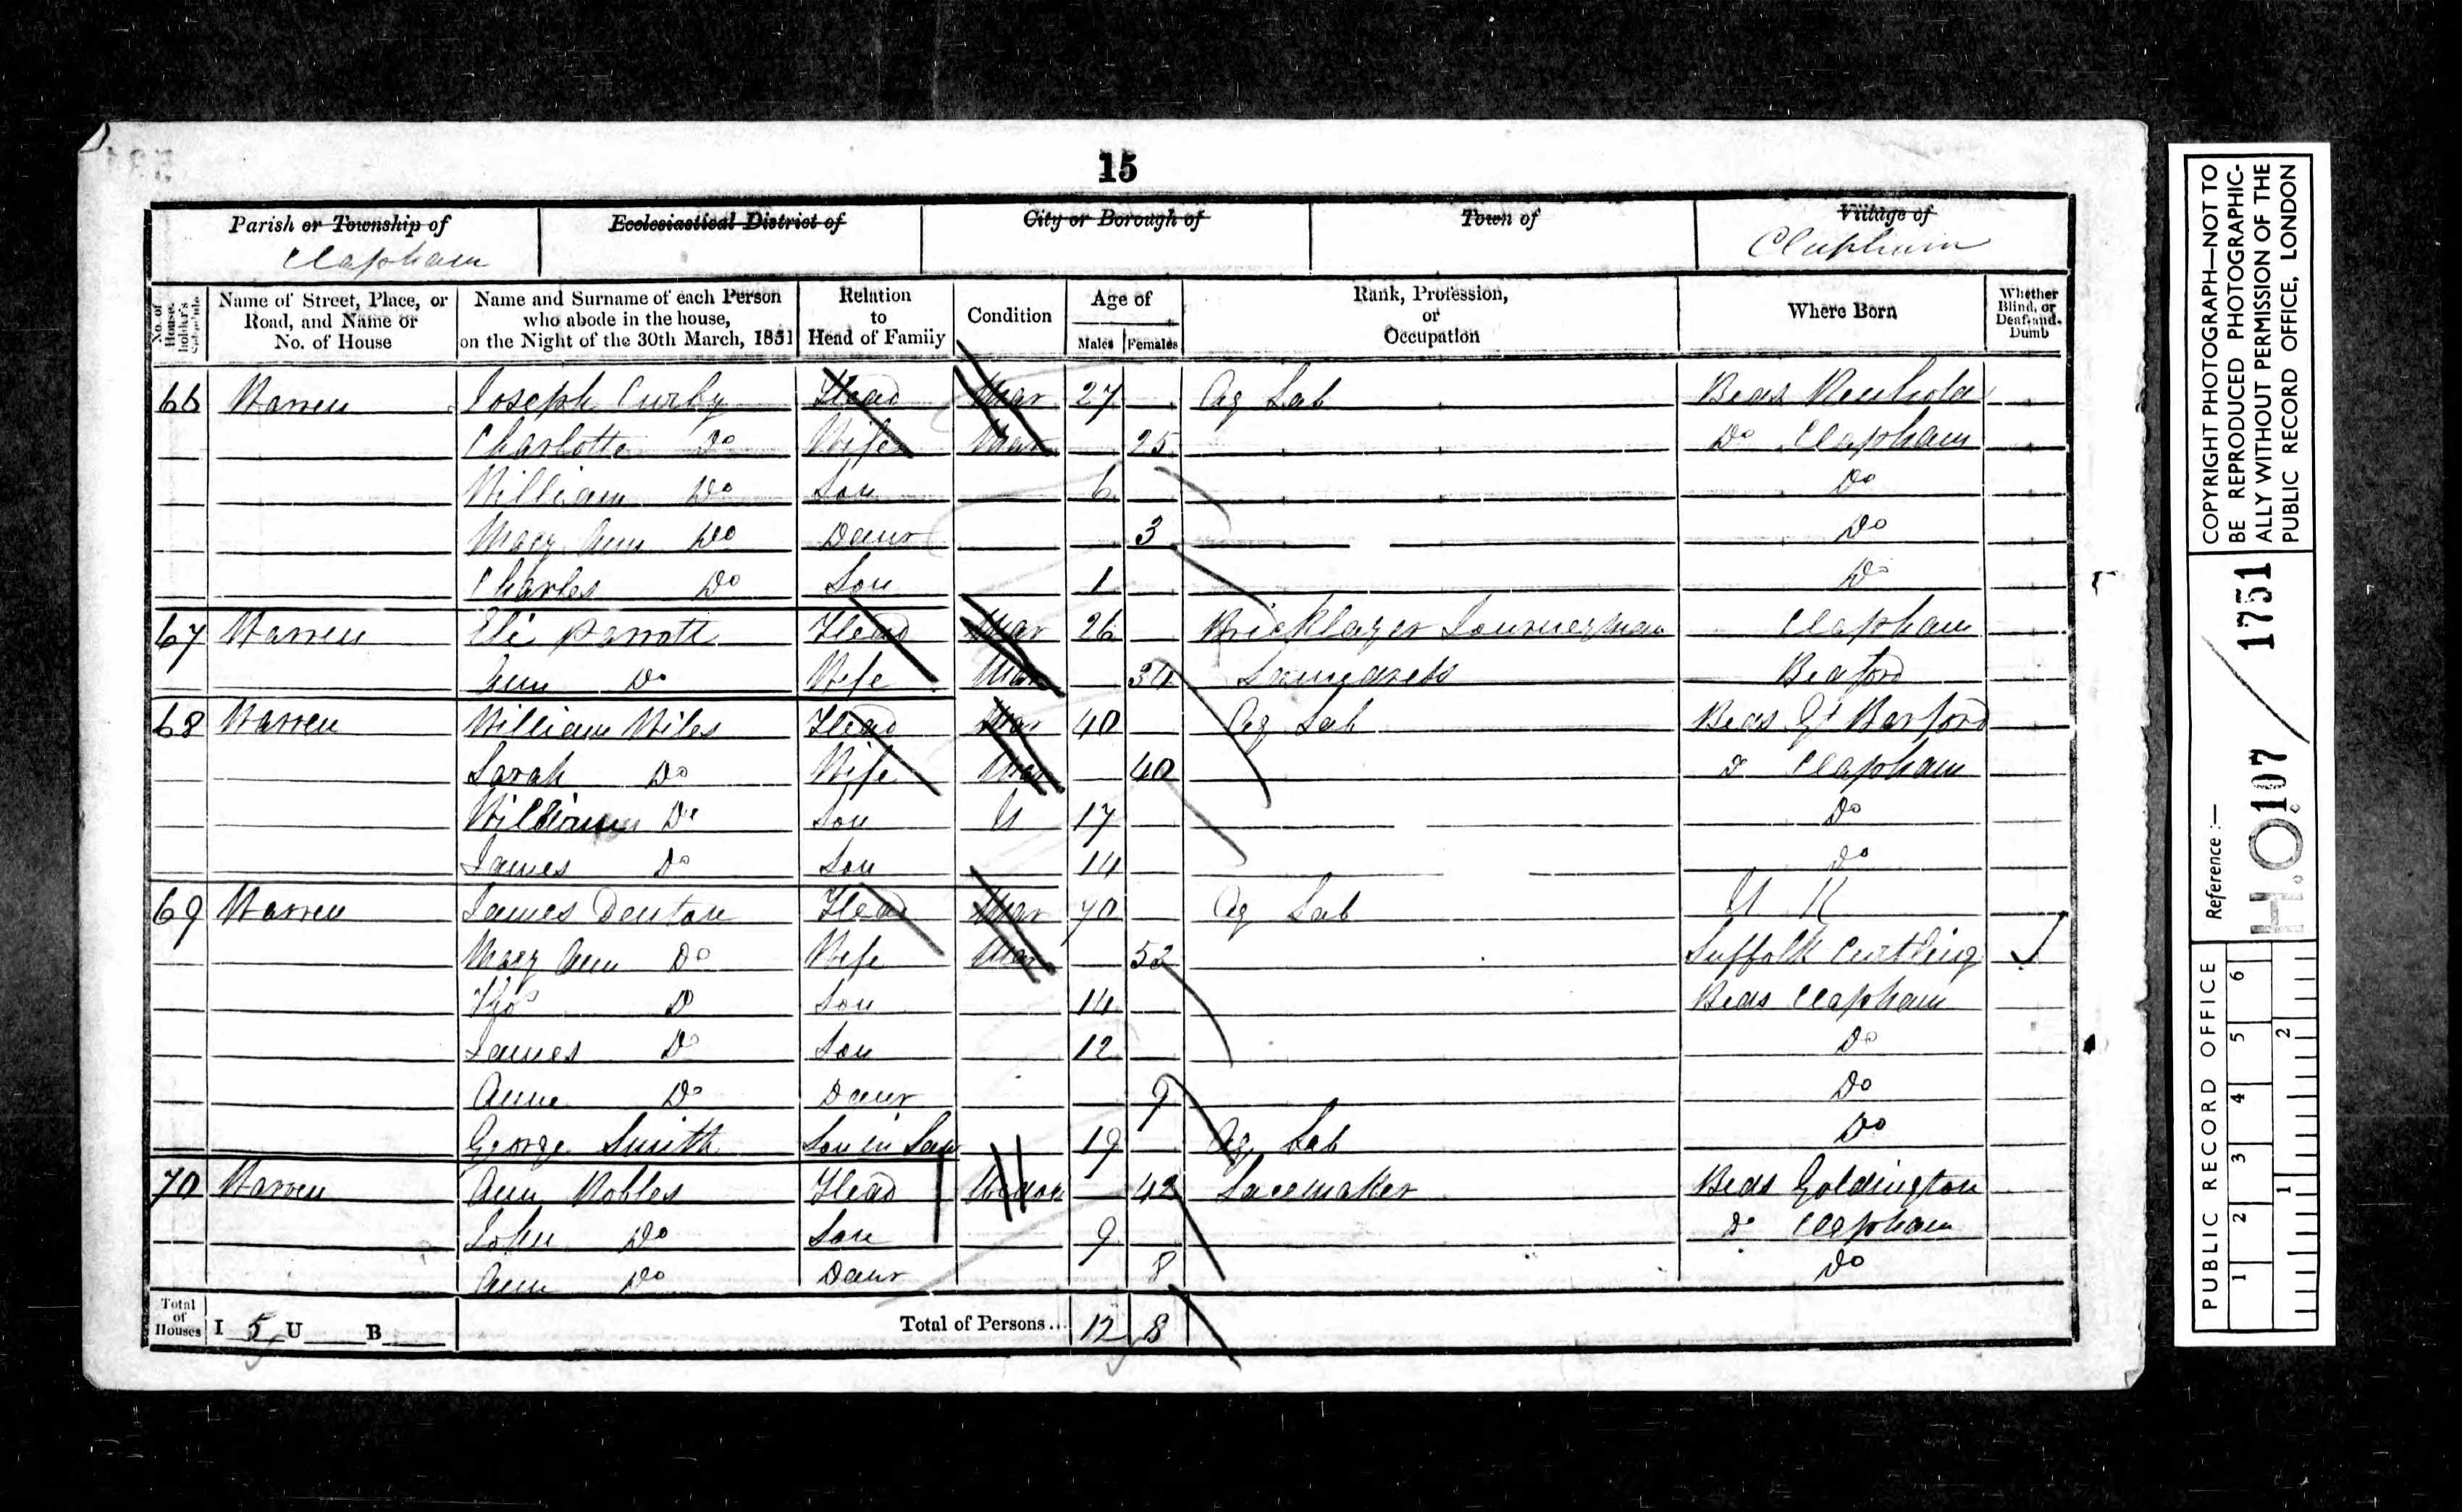 15
Parish or Township of Clapham
Ecclesiastical District of
City or Borough of
Town of
Village of Clapham
No. of House-holder's Schedule
Name of Street, Place, or Road, and Name or No. of House
Name and Surname of each Person who abode in the house, on the Night of the 30th March, 1851
Relation to Head of Family
Condition
Age of Males Females
Rank, Profession, or Occupation
Where Born
Whether Blind, or Deaf-and-Dumb
66 Warren Joseph Curby Head Mar 27 Ag Lab Beds Renhold
Charlotte Do Wife Mar 25 Do Clapham
William Do Son 6 Do
Mary Ann Do Daur 3 Do
Charles Do Son 1 Do
67 Warren Eli Parrott Head Mar 26 Bricklayer Journeyman Clapham
Ann Do Wife Mar 34 Laundress Bedford
68 Warren William Wiles Head Mar 40 Ag Lab Beds Gt Barford
Sarah Do Wife Mar 40 D Clapham
William Do Son U 17 Do
James Do Son 14 Do
69 Warren James Denton Head Mar 70 Ag Lab N K
Mary Ann Do Wife Mar 52 Suffolk
Thos D Son 14 Beds Clapham
James Do Son 12 Do
Anne Do Daur 9 Do
George Smith Son in Law 19 Ag Lab Do
70 Warren Ann Robles Head Widow 42 Lacemaker Beds Goldington
John Do Son 9 Do Clapham
Ann Do Daur 8 Do
Total of Houses I 5 U B Total of Persons... 12 8
COPYRIGHT PHOTOGRAPH—NOT TO
BE REPRODUCED PHOTOGRAPHIC-
ALLY WITHOUT PERMISSION OF THE
PUBLIC RECORD OFFICE, LONDON
Reference :—
H.O. 107 / 1751
PUBLIC RECORD OFFICE
1 2 3 4 5 6
1 2